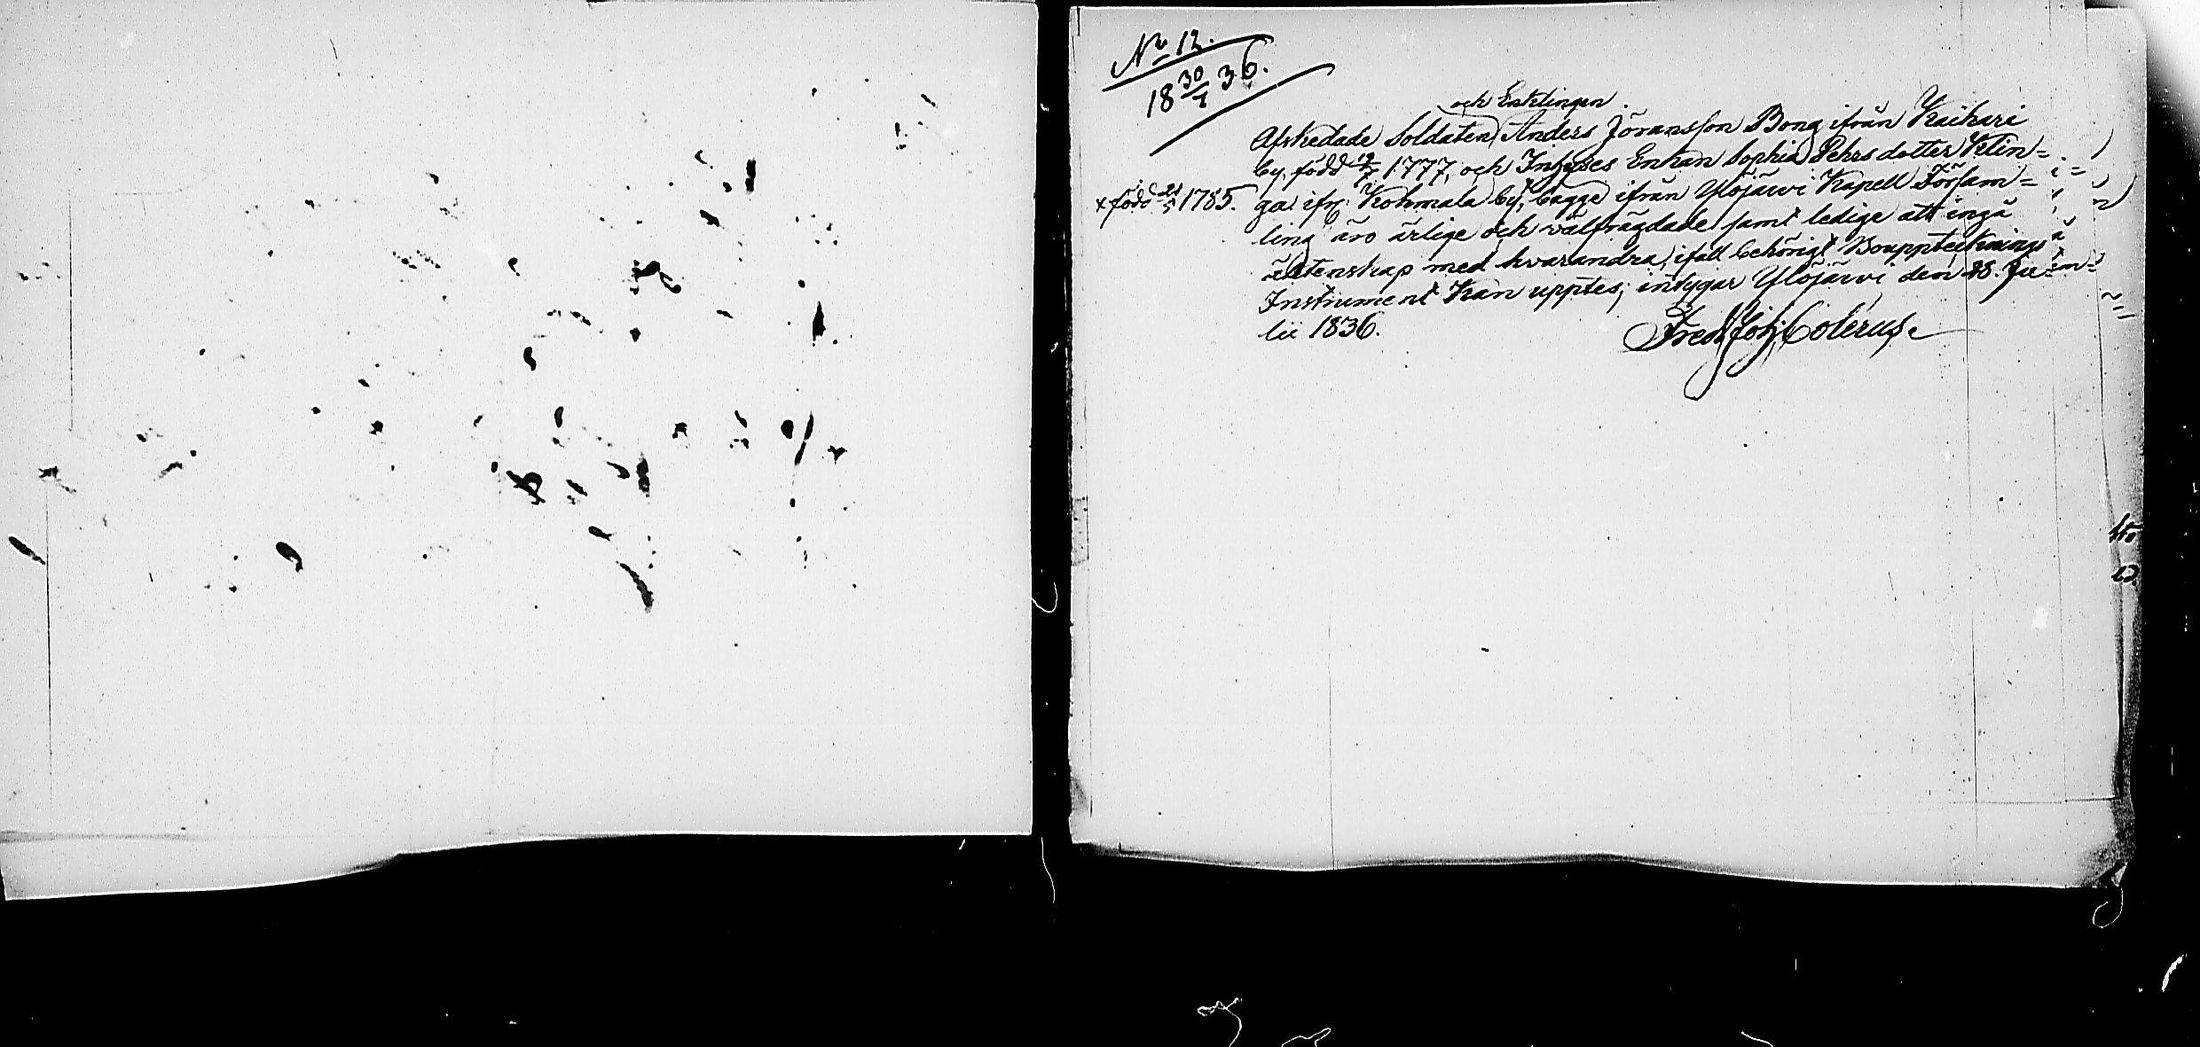 No 12.
18 30/7 36.
och Enklingen
Afskedade Soldaten Anders Jöransson Bong ifrån Kaihari
by, född 1777, och Inhyses Enkan Sophia Pehrsdotter Klin=
x född 21/5 1785. ga ifr. Kohmala by, bägge ifrån Ylöjärvi Kapell Församl=
ling äro ärlige och välfrägdade samt ledige att ingå
äktenskap med hvarandra, ifall behörigt Bouppteknings
Instrument kan upptes; intygar Ylöjärvi den 28. Ju=
lii 1836.
Fred. Joh. Colerus.